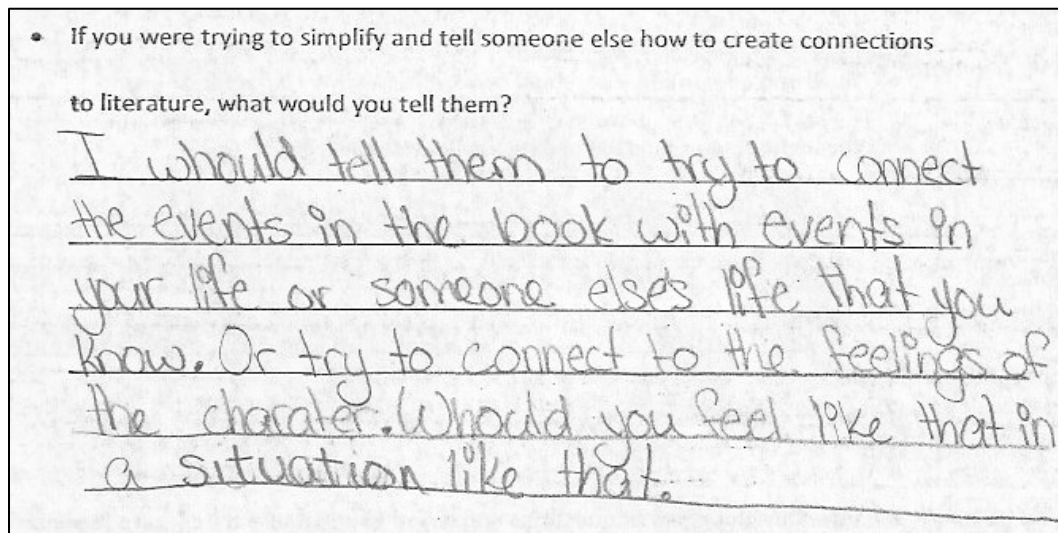 • If you were trying to simplify and tell someone else how to create connections
to literature, what would you tell them?
I whould tell them to try to connect
the events in the book with events in
your life or someone elses life that you
know. Or try to connect to the feelings of
the charater. Whould you feel like that in
a situation like that.